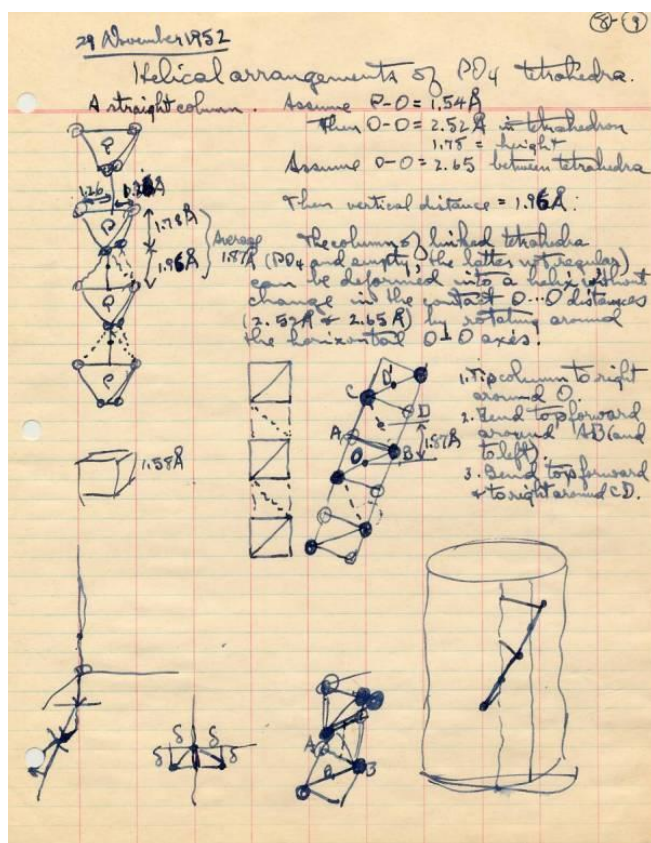 8-9
29 November 1952
Helical arrangements of PO4 tetrahedra.
A straight column.
Assume P-O = 1.54Å
Then O-O = 2.52Å in tetrahedron
1.78 = height
Assume O-O = 2.65 between tetrahedra
Then vertical distance = 1.96Å.
P
1.26
P
1.78Å
1.96Å
Average
1.87Å
P
P
The column of linked tetrahedra
(PO4 and empty, the latter not regular)
can be deformed into a helix without
change in the contact O···O distances
(2.52Å & 2.65Å) by rotating around
the horizontal O⊥O axes.
1. Tip column to right
around O.
2. Bend top forward
around AB (and
to left).
3. Bend top forward
& to right around CD.
D'
C
D
A
B
O
1.87Å
1.58Å
δ δ
δ δ
A
B